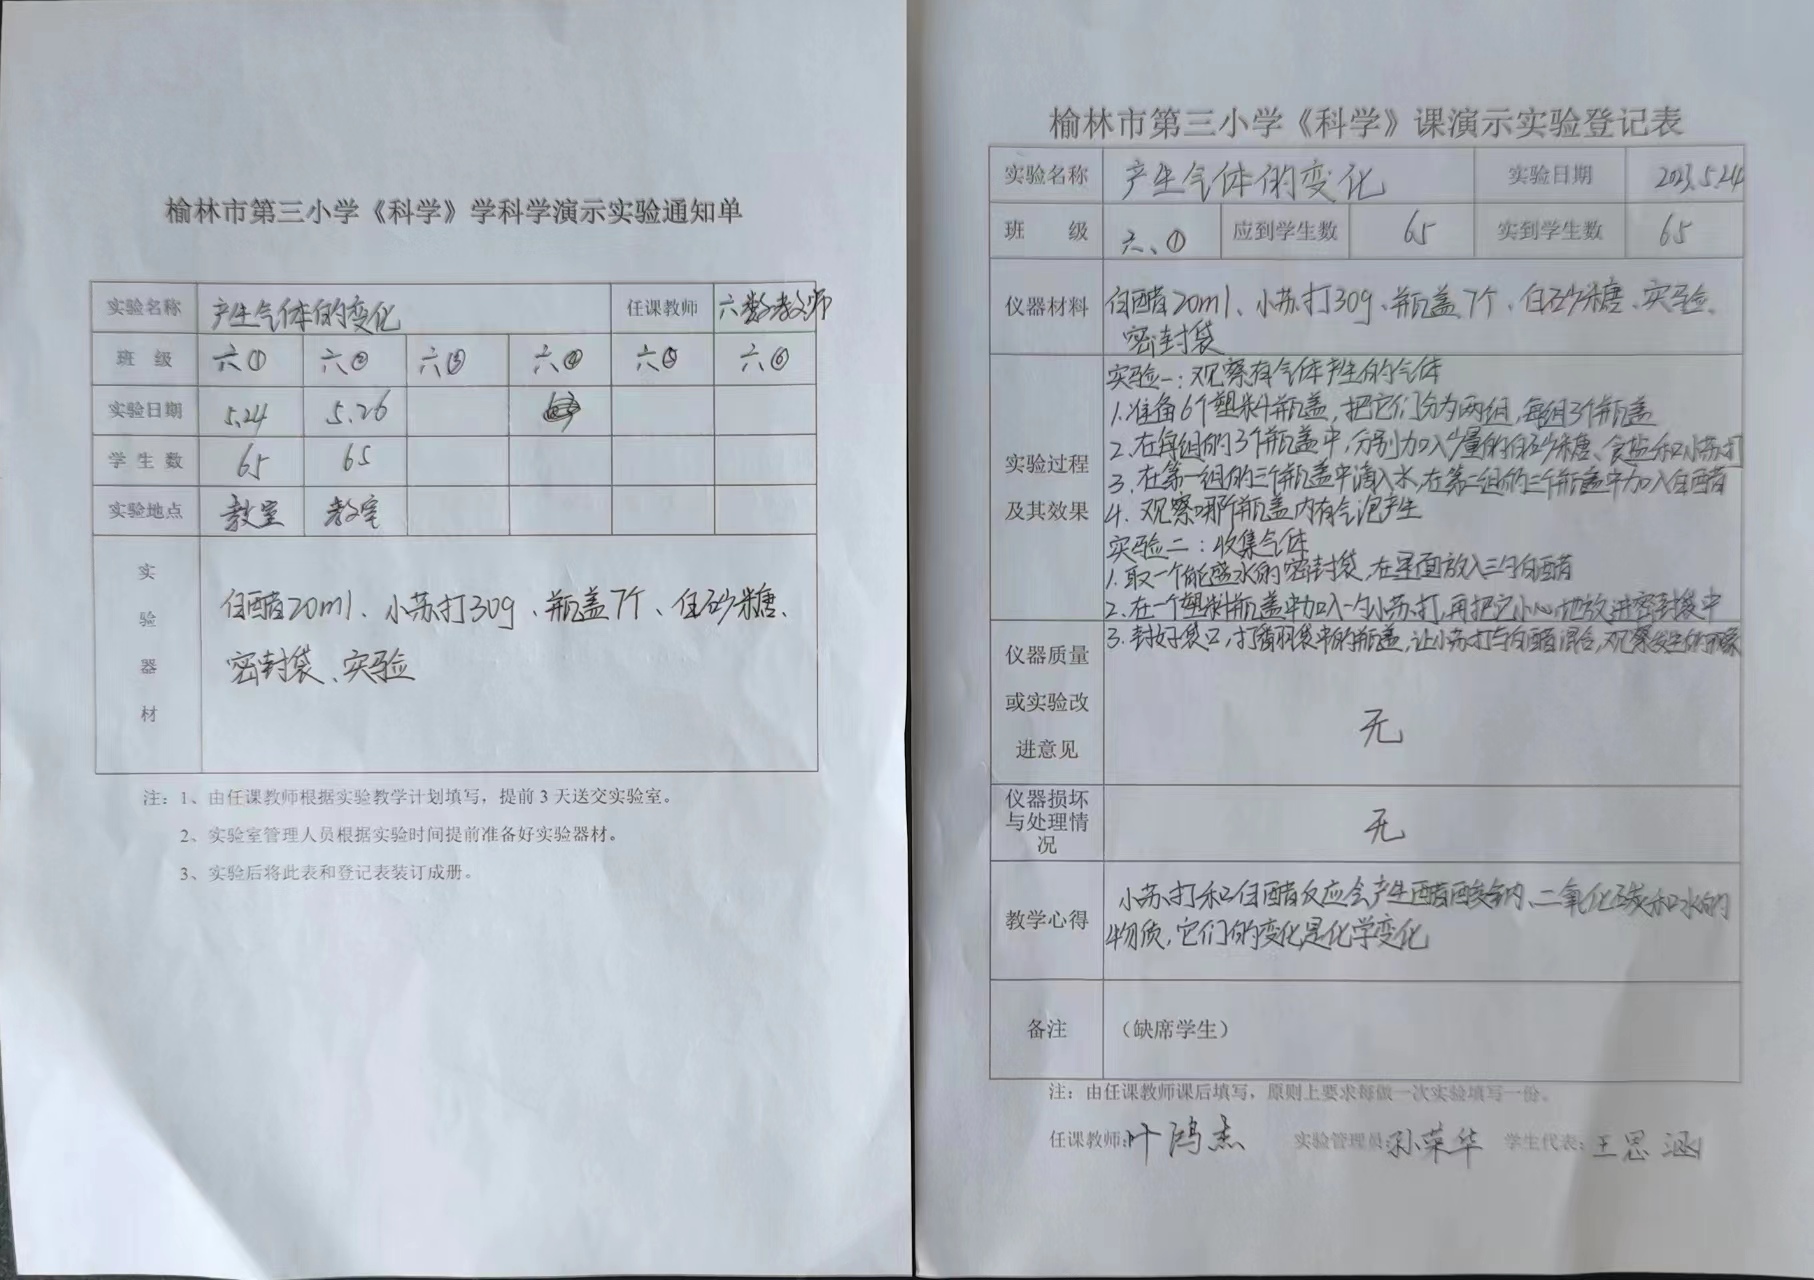 榆林市第三小学《科学》学科学演示实验通知单
实验名称 产生气体的变化 任课教师 六数教师
班 级 六① 六② 六③ 六④ 六⑤ 六⑥
实验日期 5.24 5.26
学 生 数 65 65
实验地点 教室 教室
实
验
器
材
白醋20ml、小苏打30g、瓶盖7个、白砂糖、
密封袋、实验
注：1、由任课教师根据实验教学计划填写，提前3天送交实验室。
2、实验室管理人员根据实验时间提前准备好实验器材。
3、实验后将此表和登记表装订成册。
榆林市第三小学《科学》课演示实验登记表
实验名称 产生气体的变化 实验日期 2023.5.24
班 级 六、① 应到学生数 65 实到学生数 65
仪器材料 白醋20ml、小苏打30g、瓶盖7个、白砂糖、实验、
密封袋
实验过程
及其效果
实验一：观察有气体产生的气体
1.准备6个塑料瓶盖，把它们分为两组，每组3个瓶盖
2.在每组的3个瓶盖中，分别加入少量的白砂糖、食盐和小苏打
3.在第一组的三个瓶盖中滴入水，在第二组的三个瓶盖中加入白醋
4.观察哪个瓶盖内有气泡产生
实验二：收集气体
1.取一个能盛水的密封袋，在里面放入三勺白醋
2.在一个塑料瓶盖中加入一勺小苏打，再把它小心地放进密封袋中
3.封好袋口，打翻羽袋中的瓶盖，让小苏打与白醋混合，观察发生的现象
仪器质量
或实验改
进意见
无
仪器损坏
与处理情
况
无
教学心得
小苏打和白醋反应会产生醋酸钠、二氧化碳和水的
物质，它们的变化是化学变化
备注 （缺席学生）
注：由任课教师课后填写，原则上要求每做一次实验填写一份。
任课教师：叶鸿杰 实验管理员：孙荣华 学生代表：王思涵